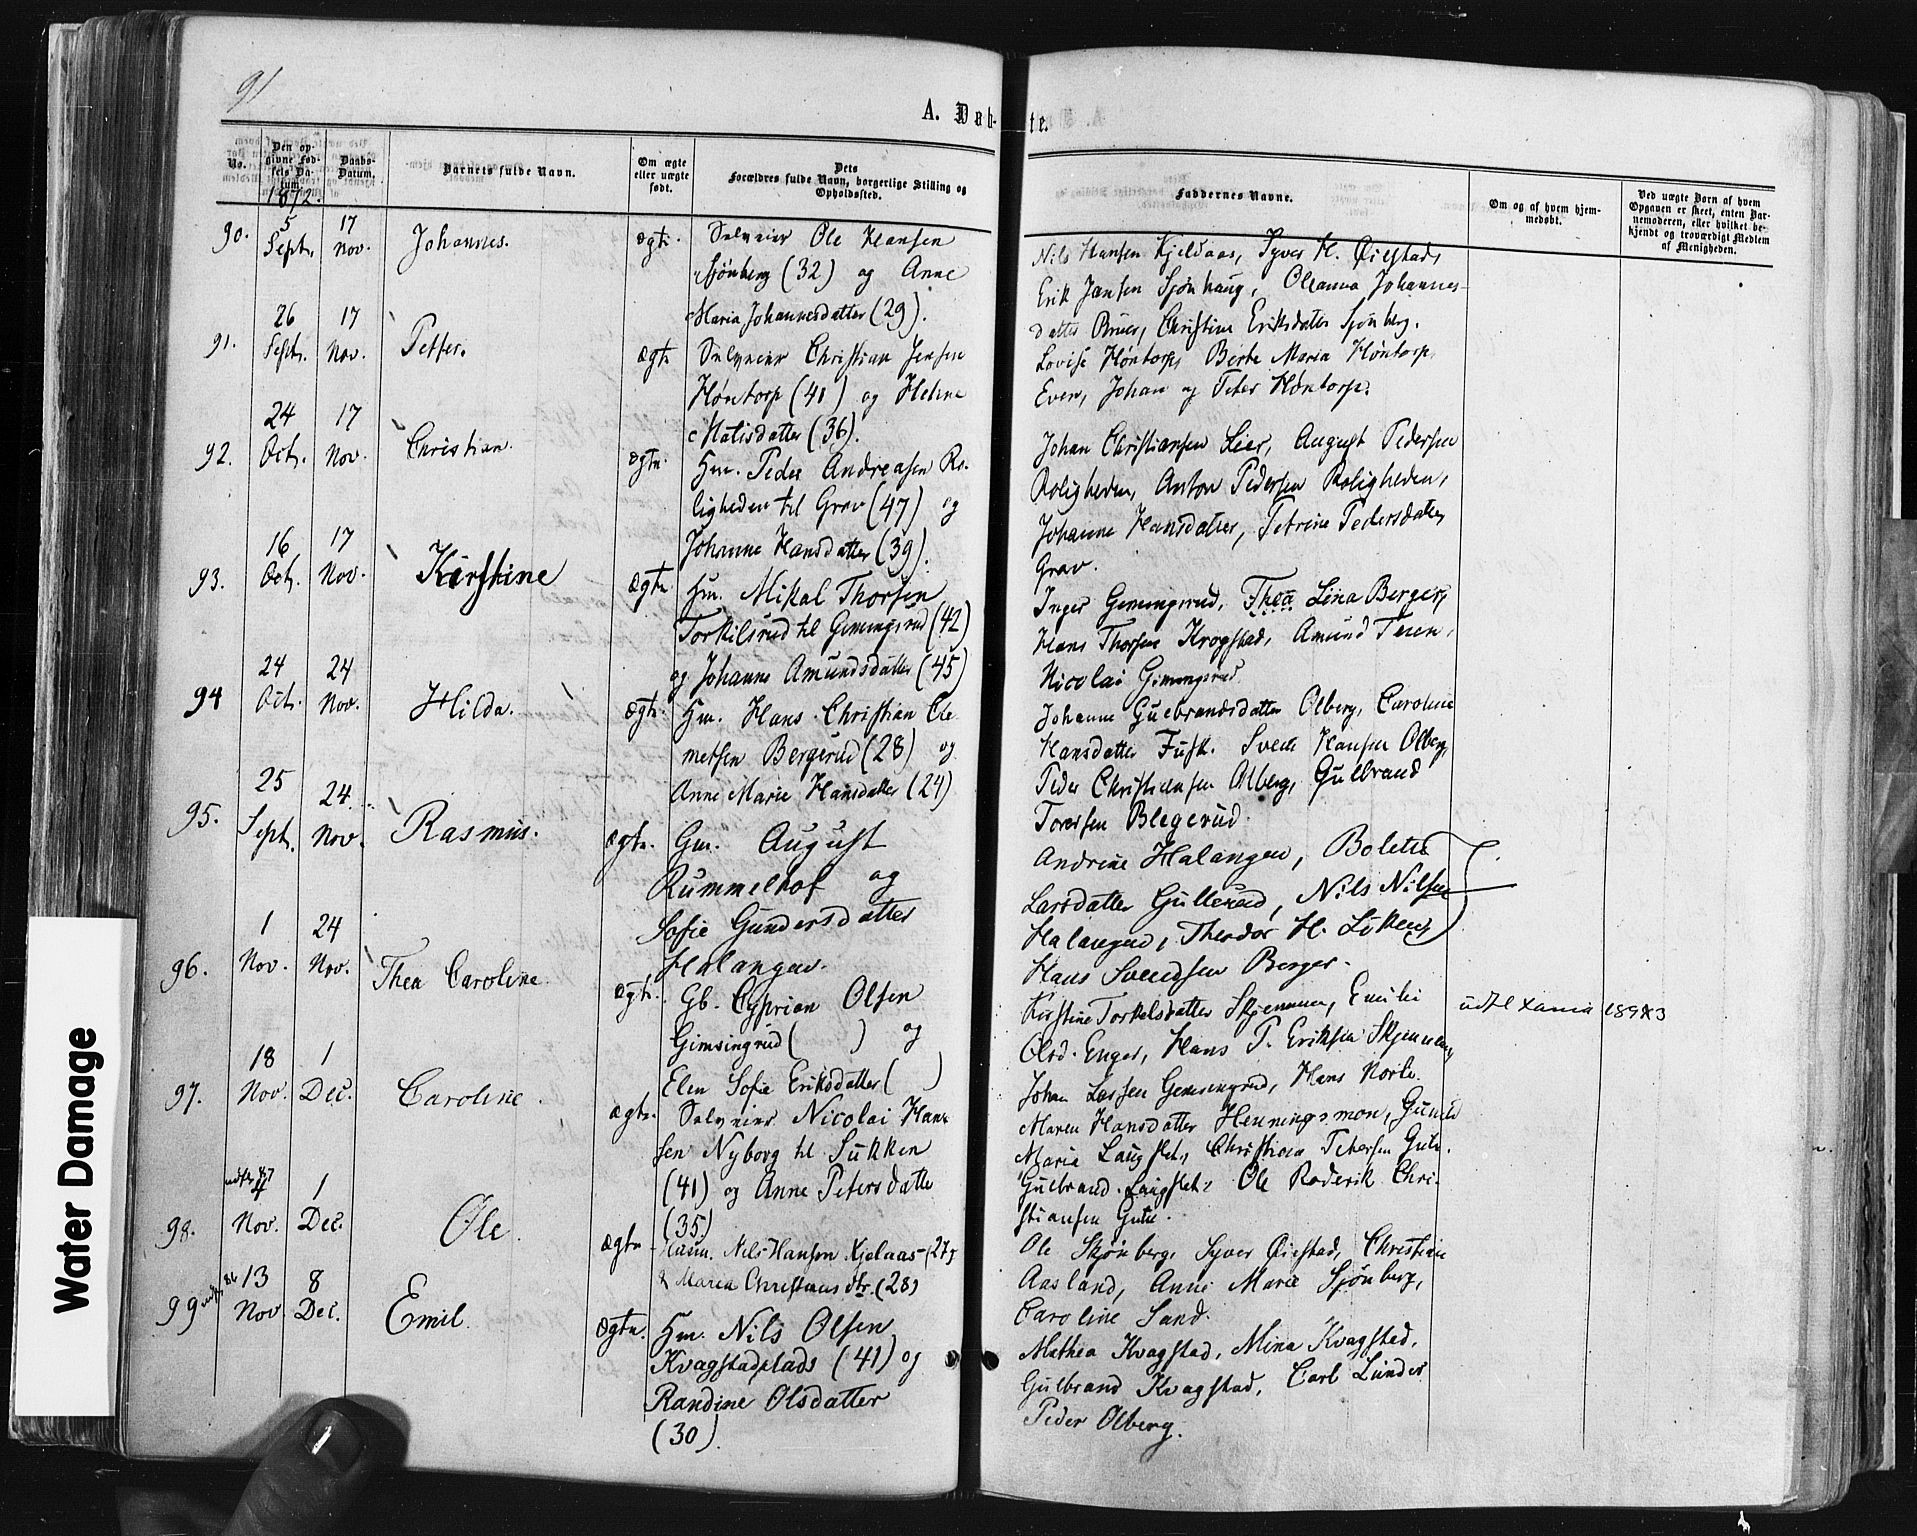 91
A. Døb-
te.
No.
Den op-
givne fød-
sels Da-
tum.
1872.
Daabs-
Datum.
Barnets fulde Navn.
Om ægte
eller uægte
født.
Dets
Forældres fulde Navn, borgerlige Stilling og
Opholdssted.
Faddernes Navne.
Om og af hvem hjem-
medøbt.
Ved uægte Børn af hvem
Opgaven er skeet, enten Bar-
nemoderen, eller hvilket be-
kjendt og troværdigt Medlem
af Menigheden.
90.
5
Sept.
17
Nov.
Johannes.
ægte.
Selveier Ole Hansen
Sjønberg (32) og Anne
Maria Johannesdatter (29).
Nils Hansen Kjeldaas, Syver H. Øiestad,
Erik Jansen Sjønhaug, Oleanna Johannes-
datter Bruer, Christine Eriksdatter Sjønberg.
91.
26
Sept.
17
Nov.
Petter.
ægte
Selveier Christian Jensen
Høntorp (41) og Helene
Matisdatter (36).
Lovise Høntorp, Berte Maria Høntorp,
Even, Johan og Peter Høntorp.
92.
24
Oct.
17
Nov.
Christian.
ægte.
Hm. Peder Andreasen Ro-
ligheden til Grav (47) og
Johanne Hansdatter (39).
Johan Christiansen Lier, August Pedersen
Roligheden, Anton Pedersen Roligheden,
Johanne Hansdatter, Petrine Pedersdatter
Grav.
93.
16
Oct.
17
Nov.
Kirstine
ægte
Hm. Mikal Thorsen
Torkilsrud til Gimingsrud (42)
og Johanne Amundsdatter (45)
Inger Gimingsrud, Thea Lina Berger,
Hans Thorsen Krogstad, Amund Teien,
Nicolai Gimingsrud.
94
24
Oct.
24
Nov.
Hilda.
ægte.
Hm. Hans Christian Cle
metsen Bergerud (28) og
Anne Marie Hansdatter (24)
Johanne Gulbrandsdatter Olberg, Caroline
Hansdatter Fusk. Svend Hansen Olberg,
Peder Christiansen Olberg, Gulbrand
Toresen Blegerud.
95.
25
Sept.
24
Nov.
Rasmus.
ægte.
Gm. August
Rummelhof og
Sofie Gundersdatter
Halangen.
Andrine Halangen, Bolette
Larsdatter Gullerud, Nils Nilsen
Halangen, Theodor H. Løken,
Hans Svendsen Berger.
96.
1
Nov.
24
Nov.
Thea Caroline.
ægte.
Gb. Cyprian Olsen
Gimsingrud ( ) og
Elen Sofie Eriksdatter ( )
Kirstine Torkelsdatter Skjennum, Emilie
Olsd. Enger, Hans P. Eriksen Skjennum,
Johan Larsen Gimsingrud, Hans Norte.
udfl Xania 1893
97.
18
Nov.
1
Dec.
Caroline.
ægte.
Selveier Nicolai Han-
sen Nyborg til Sukken
(41) og Anne Petersdatter
(35)
Maren Hansdatter Henningsmoen, Gunild
Maria Laugslet, Christian Petersen Gute.
Gulbrand Laugslet, Ole Roderik Chri-
stiansen Gute.
98.
Nov.
1
Dec.
Ole.
ægte
Nils Hansen Kjelaas (27)
& Maria Christiansdtr. (28)
Ole Skjønberg, Syver Øiestad, Christian
Aasland, Anne Marie Sjønberg,
Caroline Sand.
99
13
Nov.
8
Dec.
Emil.
ægte.
Hm. Nils Olsen
Kvagstadplads (41) og
Randine Olsdatter
(30).
Mathea Kvagstad, Mina Kvagstad,
Gulbrand Kvagstad, Carl Linder
Peder Olberg.
Water Damage